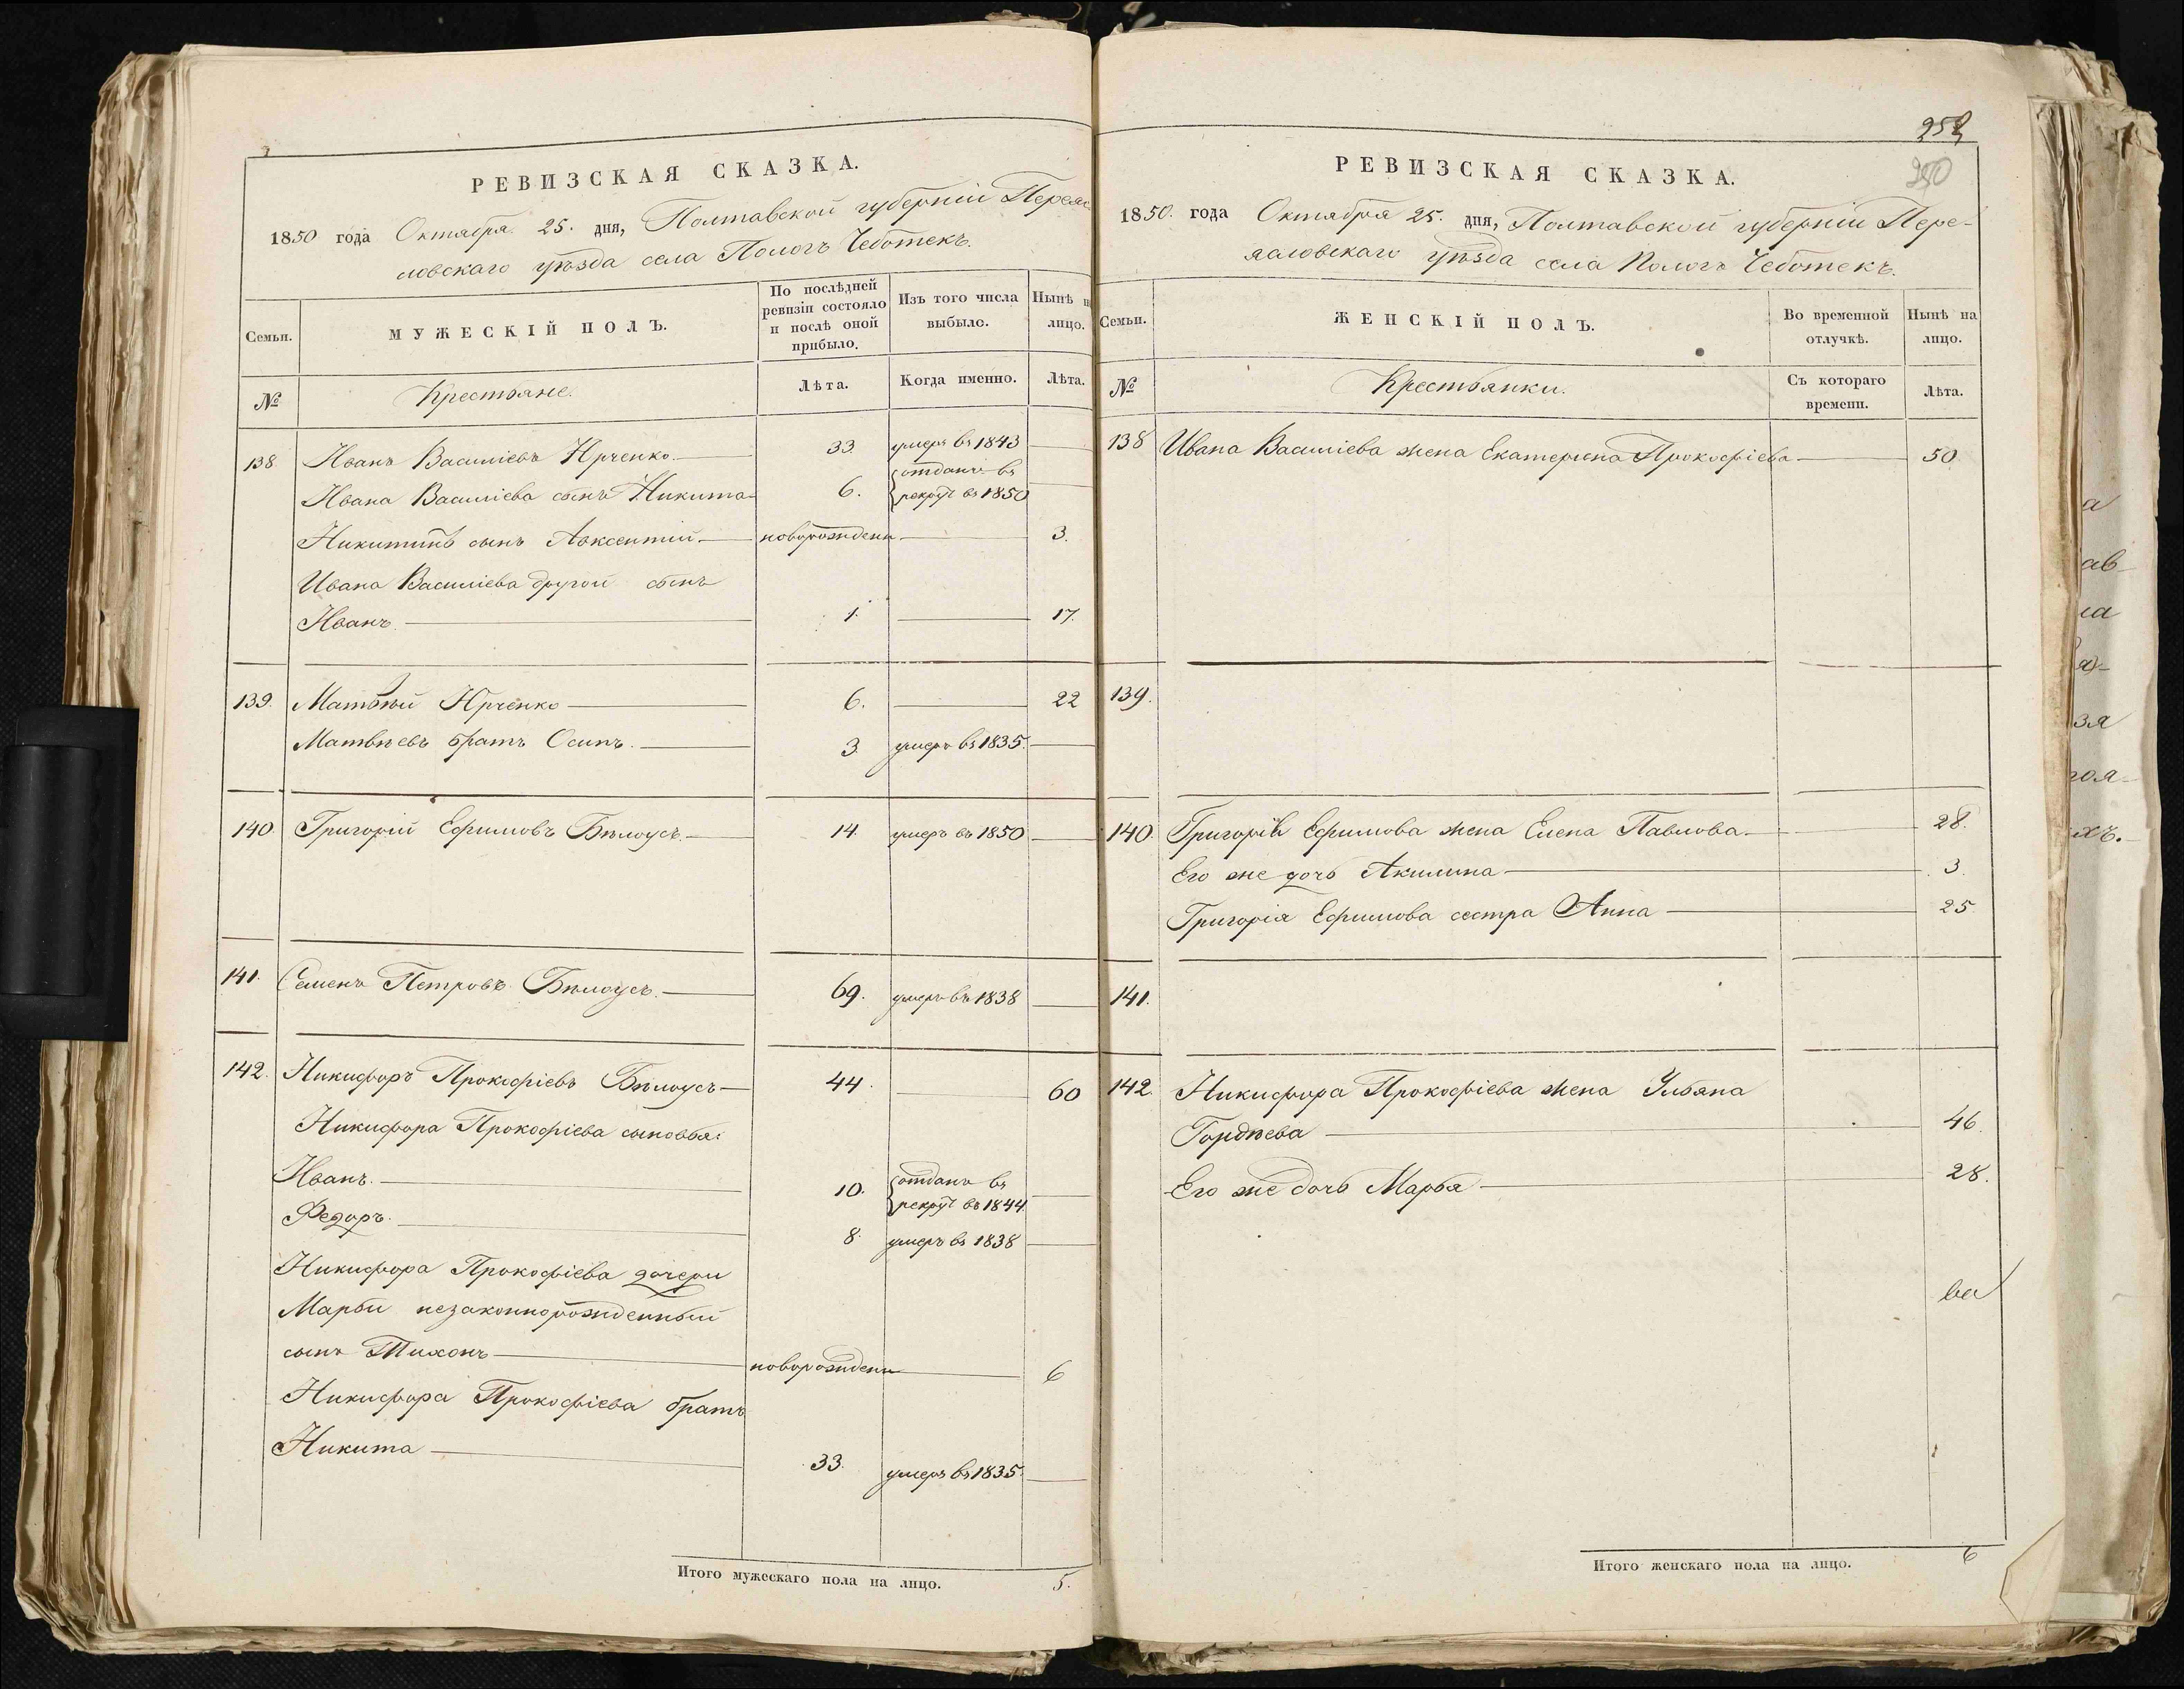 РЕВИЗСКАЯ СКАЗКА.
1850 года Октября 25. дня, Полтавской губерніи Переяс
ловскаго уѣзда села Пологъ Чеботекъ.
Семьи.
МУЖЕСКІЙ ПОЛЪ.
По послѣдней
ревизіи состояло
и послѣ оной
прибыло.
Изъ того числа
выбыло.
Нынѣ н
лицо.
№
Крестьяне.
Лѣта.
Когда именно.
Лѣта.
138. Иванъ Василіевъ Юрченко. 33. умеръ въ 1843
Ивана Василіева сынъ Никита 6. отданъ въ
рекрут въ 1850
Никитинъ сынъ Авксентій. новорожденн 3.
Ивана Василіева другой сынъ
Иванъ. 1. 17.
139. Матвѣй Юрченко 6. 22
Матвѣевъ братъ Осипъ. 3. умеръ въ 1835.
140. Григорій Ефимовъ Бѣлоусъ. 14. умеръ въ 1850
141. Семенъ Петровъ Бѣлоусъ. 69. умеръ въ 1838
142. Никифоръ Прокофіевъ Бѣлоусъ 44. 60
Никифора Прокофіева сыновья:
Иванъ. 10. отданъ въ
рекрут въ 1844.
Федоръ. 8. умеръ въ 1838
Никифора Прокофіева дочери
Марьи незаконнорожденный
сынъ Тихонъ новорожденн 6
Никифора Прокофіева братъ
Никита 33. умеръ въ 1835.
Итого мужескаго пола на лицо. 5.
250
РЕВИЗСКАЯ СКАЗКА.
1850. года Октября 25. дня, Полтавской губерніи Пере-
яаловскаго уѣзда села Пологъ Чеботекъ.
Семьи.
ЖЕНСКІЙ ПОЛЪ.
Во временной
отлучкѣ.
Нынѣ на
лицо.
№
Крестьянки.
Съ котораго
времени.
Лѣта.
138 Ивана Василіева жена Екатерина Прокофіева 50.
139.
140. Григорія Ефимова жена Елена Павлова 28.
Его же дочь Акилина 3.
Григорія Ефимова сестра Анна 25.
141.
142. Никифора Прокофіева жена Ульяна
Гордѣева 46.
Его же дочь Марья 28.
ва
Итого женскаго пола на лицо. 6
а
ав
ла
зя
гоя
хъ.